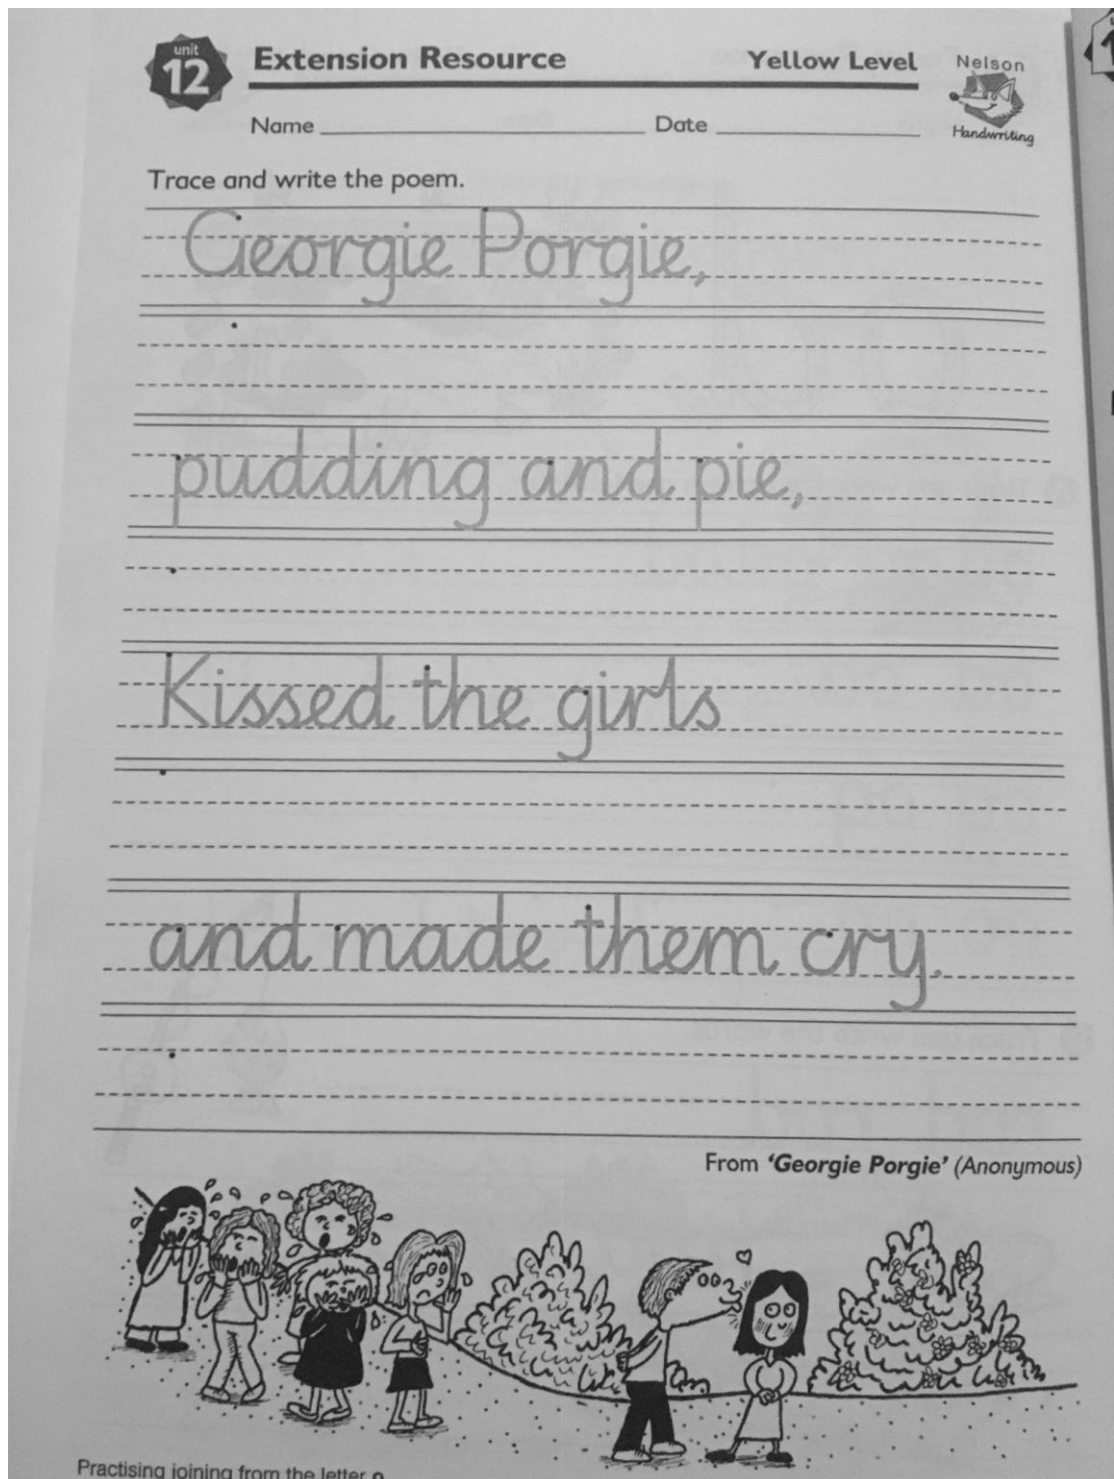 unit
12
Extension Resource
Yellow Level
Nelson
Handwriting
Name
Date
Trace and write the poem.
Georgie Porgie,
pudding and pie,
Kissed the girls
and made them cry.
From 'Georgie Porgie' (Anonymous)
Practising joining from the letter o